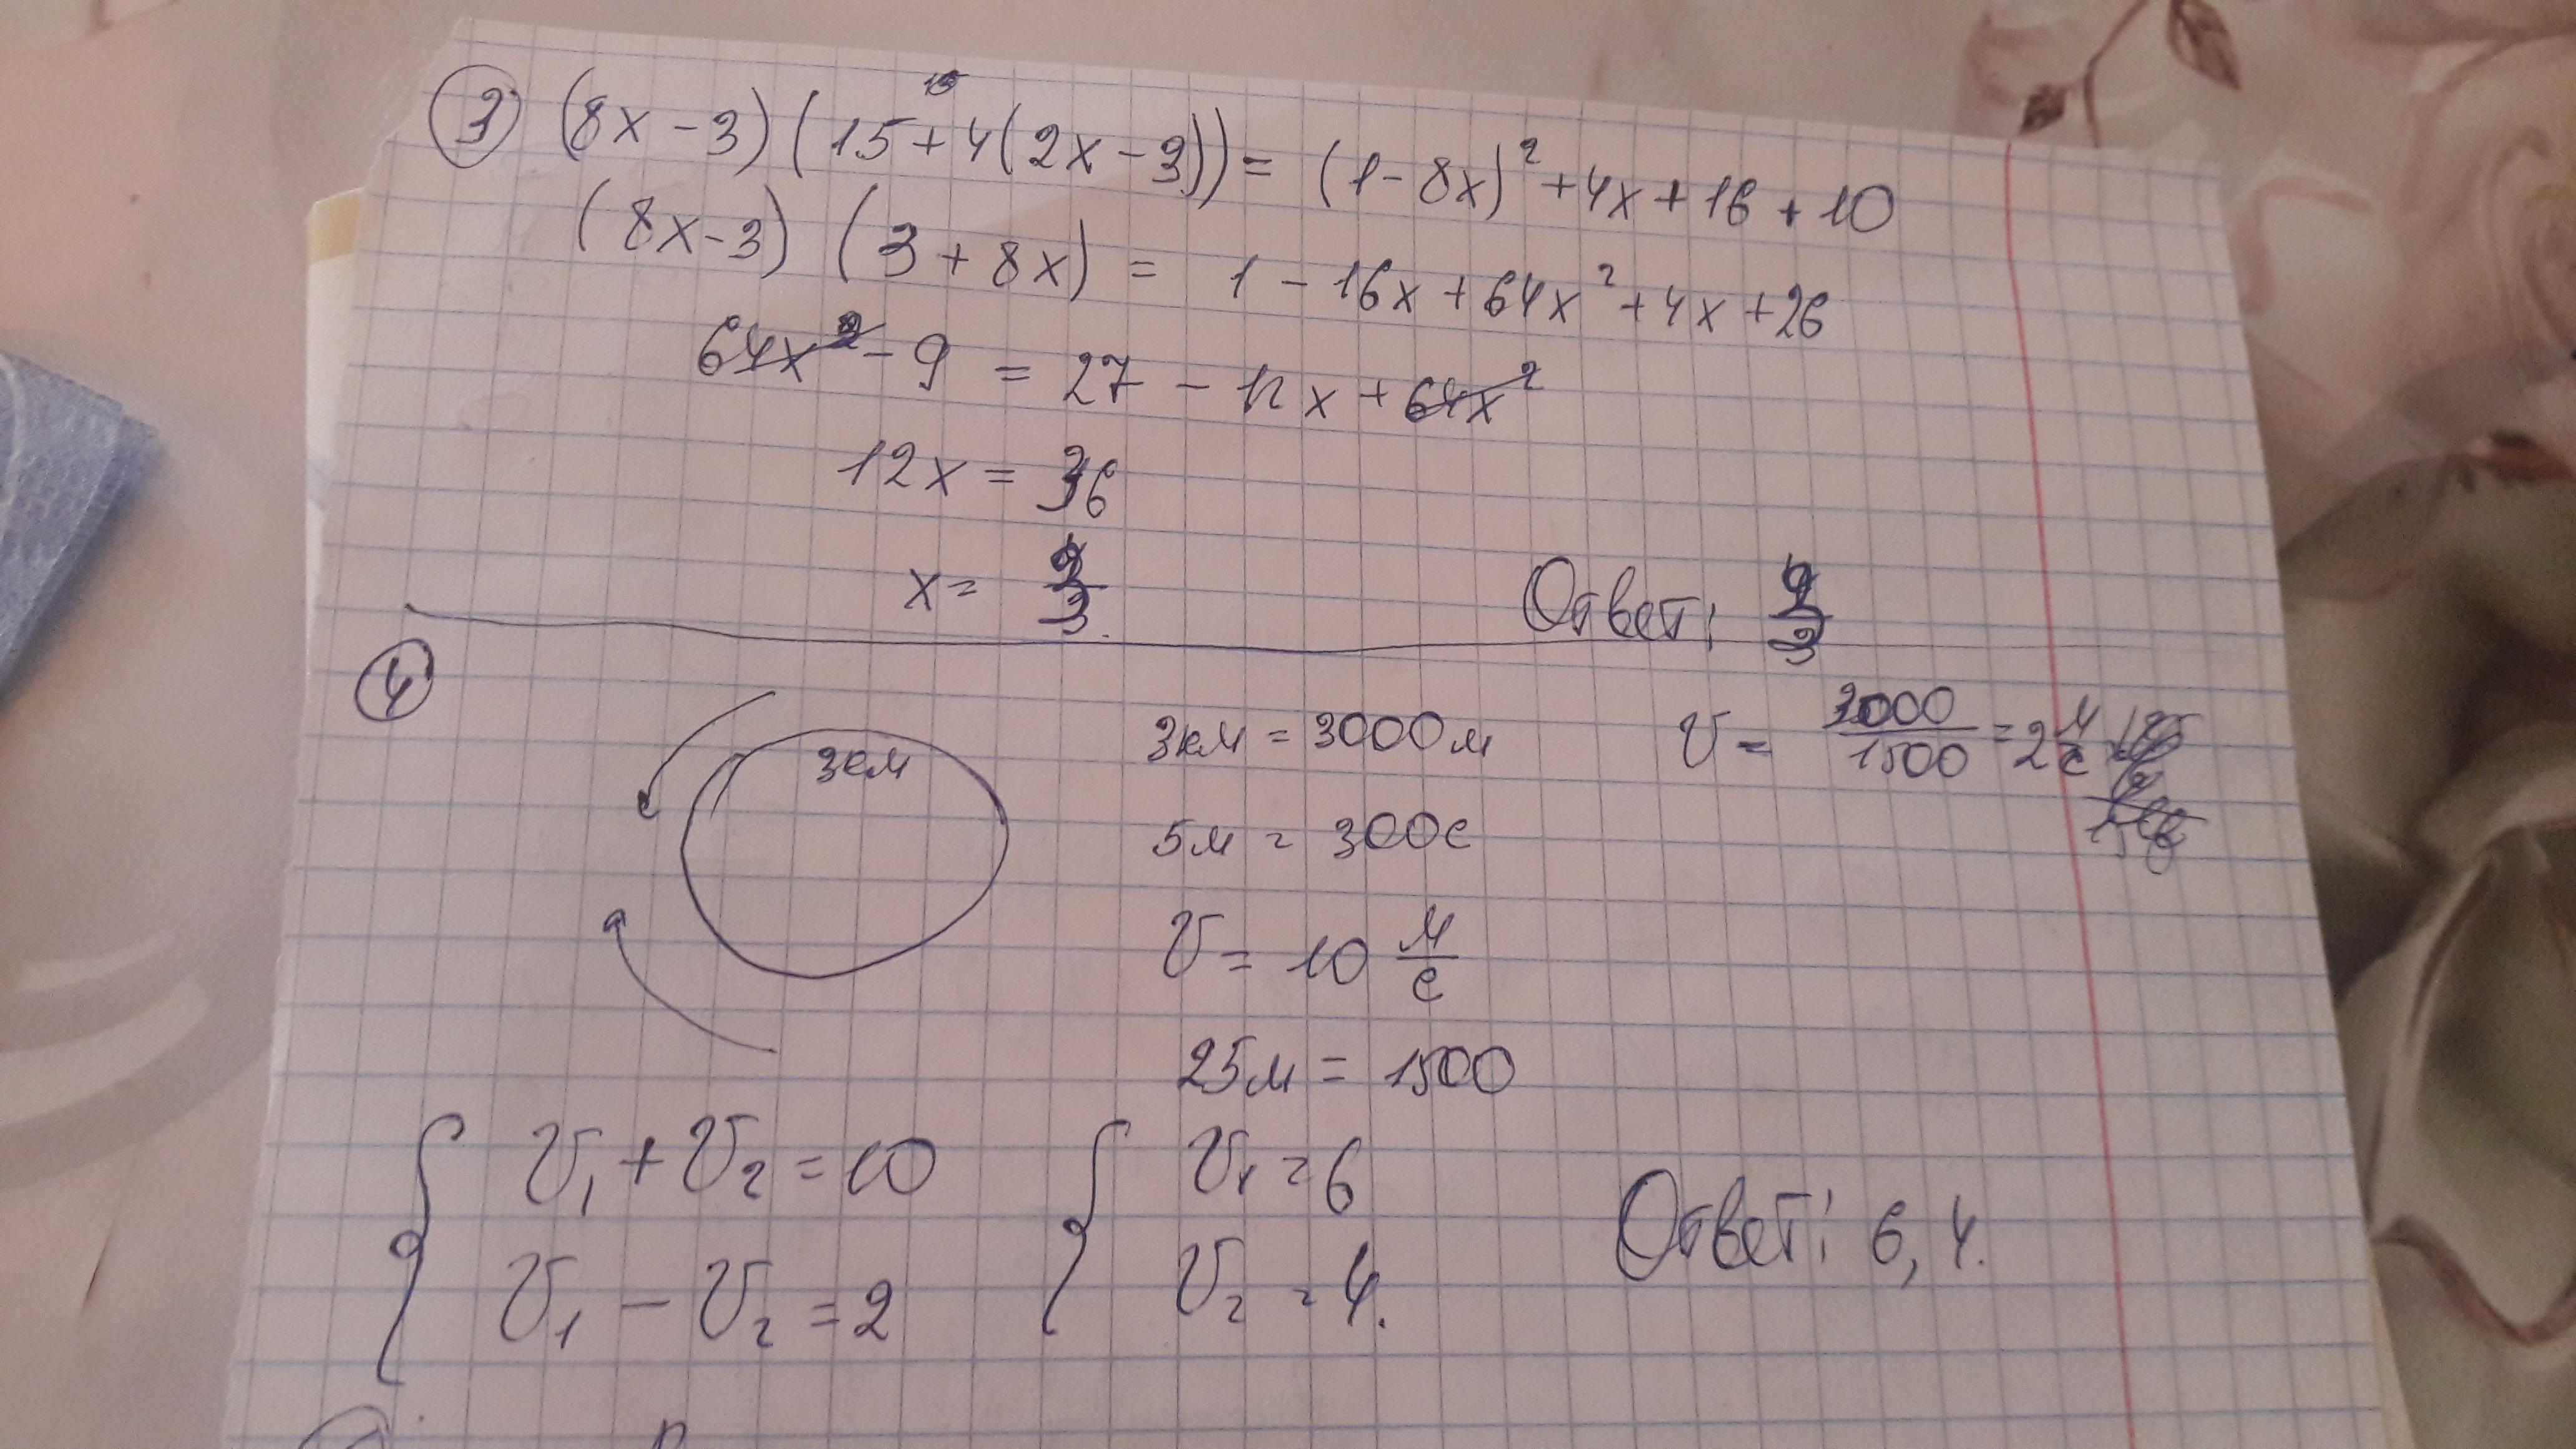 3 (8x - 3)(15 + 4(2x - 3)) = (1 - 8x)² + 4x + 16 + 10
(8x - 3) (3 + 8x) = 1 - 16x + 64x² + 4x + 26
64x² - 9 = 27 - 12x + 64x²
12x = 36
x =
Ответ:
4
3км
3км = 3000м
V = 3000/1500 = 2 м/с
5м = 300с
V = 10 м/с
25м = 1500
V₁ + V₂ = 10
V₁ - V₂ = 2
V₁ = 6
V₂ = 4.
Ответ: 6, 4.